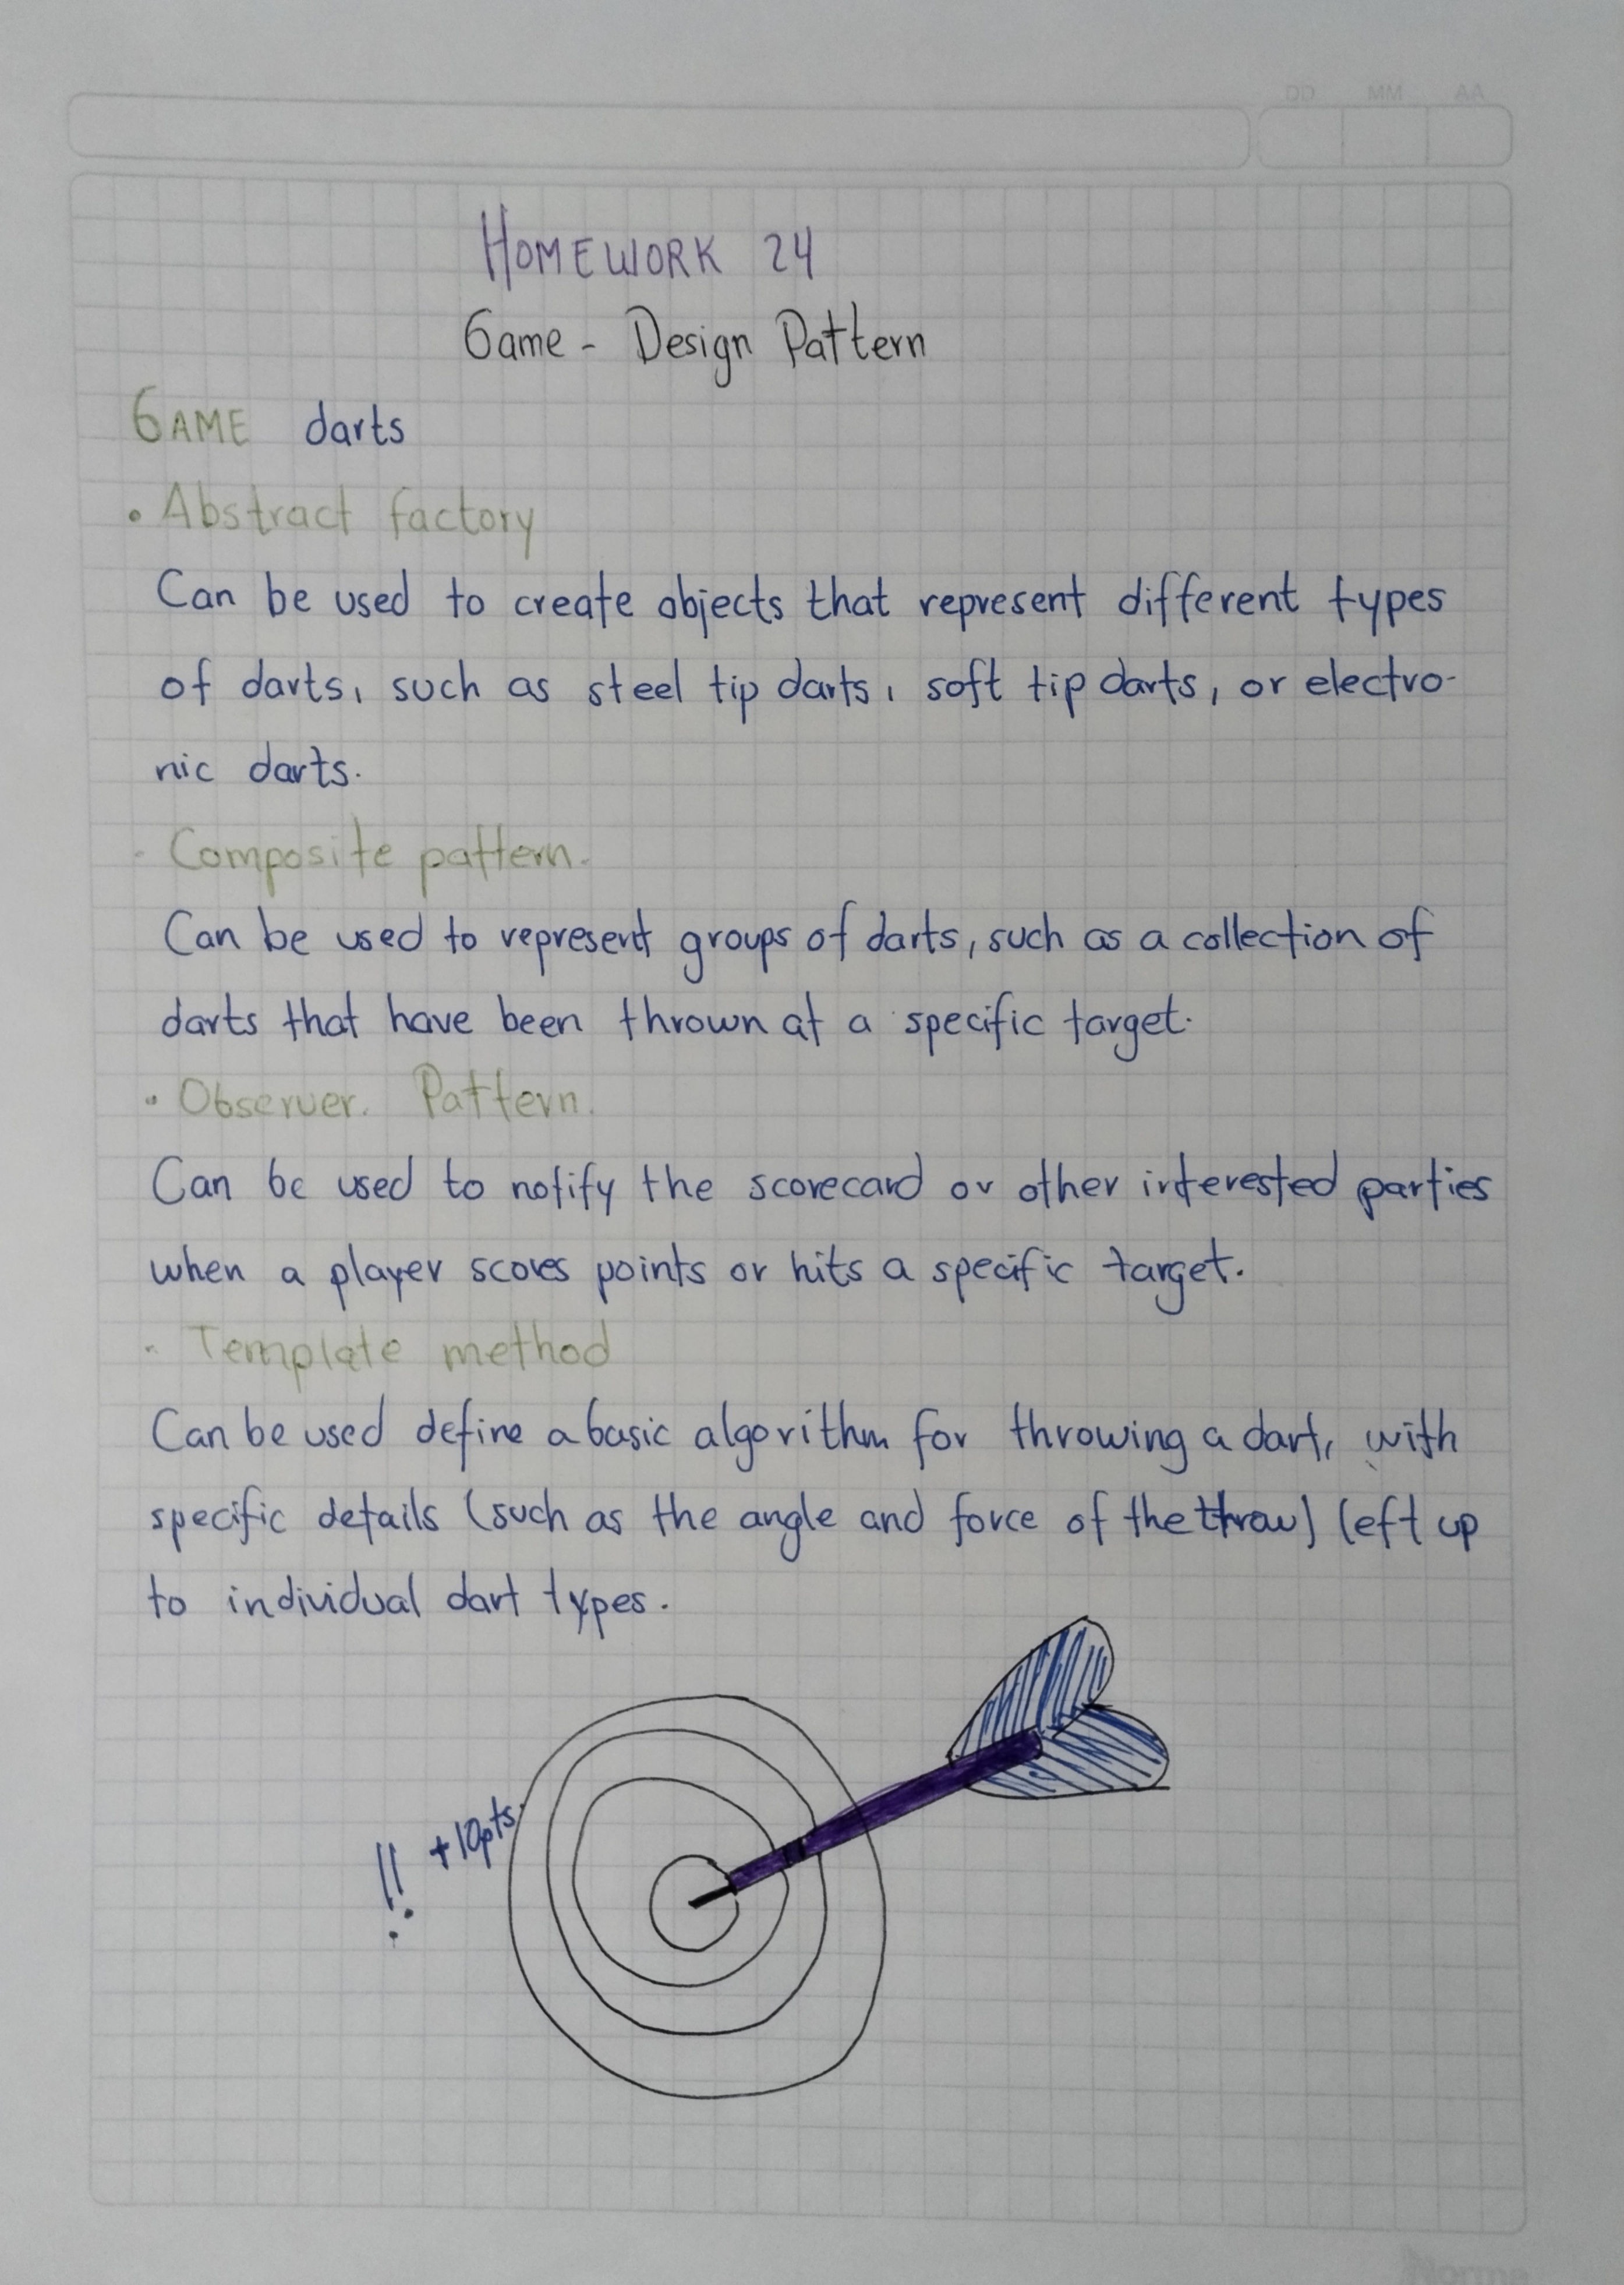 DD MM AA
HOMEWORK 24
Game - Design Pattern
GAME darts
• Abstract factory
Can be used to create objects that represent different types
of darts, such as steel tip darts, soft tip darts, or electro-
nic darts.
- Composite pattern.
Can be used to represent groups of darts, such as a collection of
darts that have been thrown at a specific target.
• Observer. Pattern.
Can be used to notify the scorecard or other interested parties
when a player scores points or hits a specific target.
• Template method
Can be used define a basic algorithm for throwing a dart, with
specific details (such as the angle and force of the throw) left up
to individual dart types.
!! +10pts.
Norma